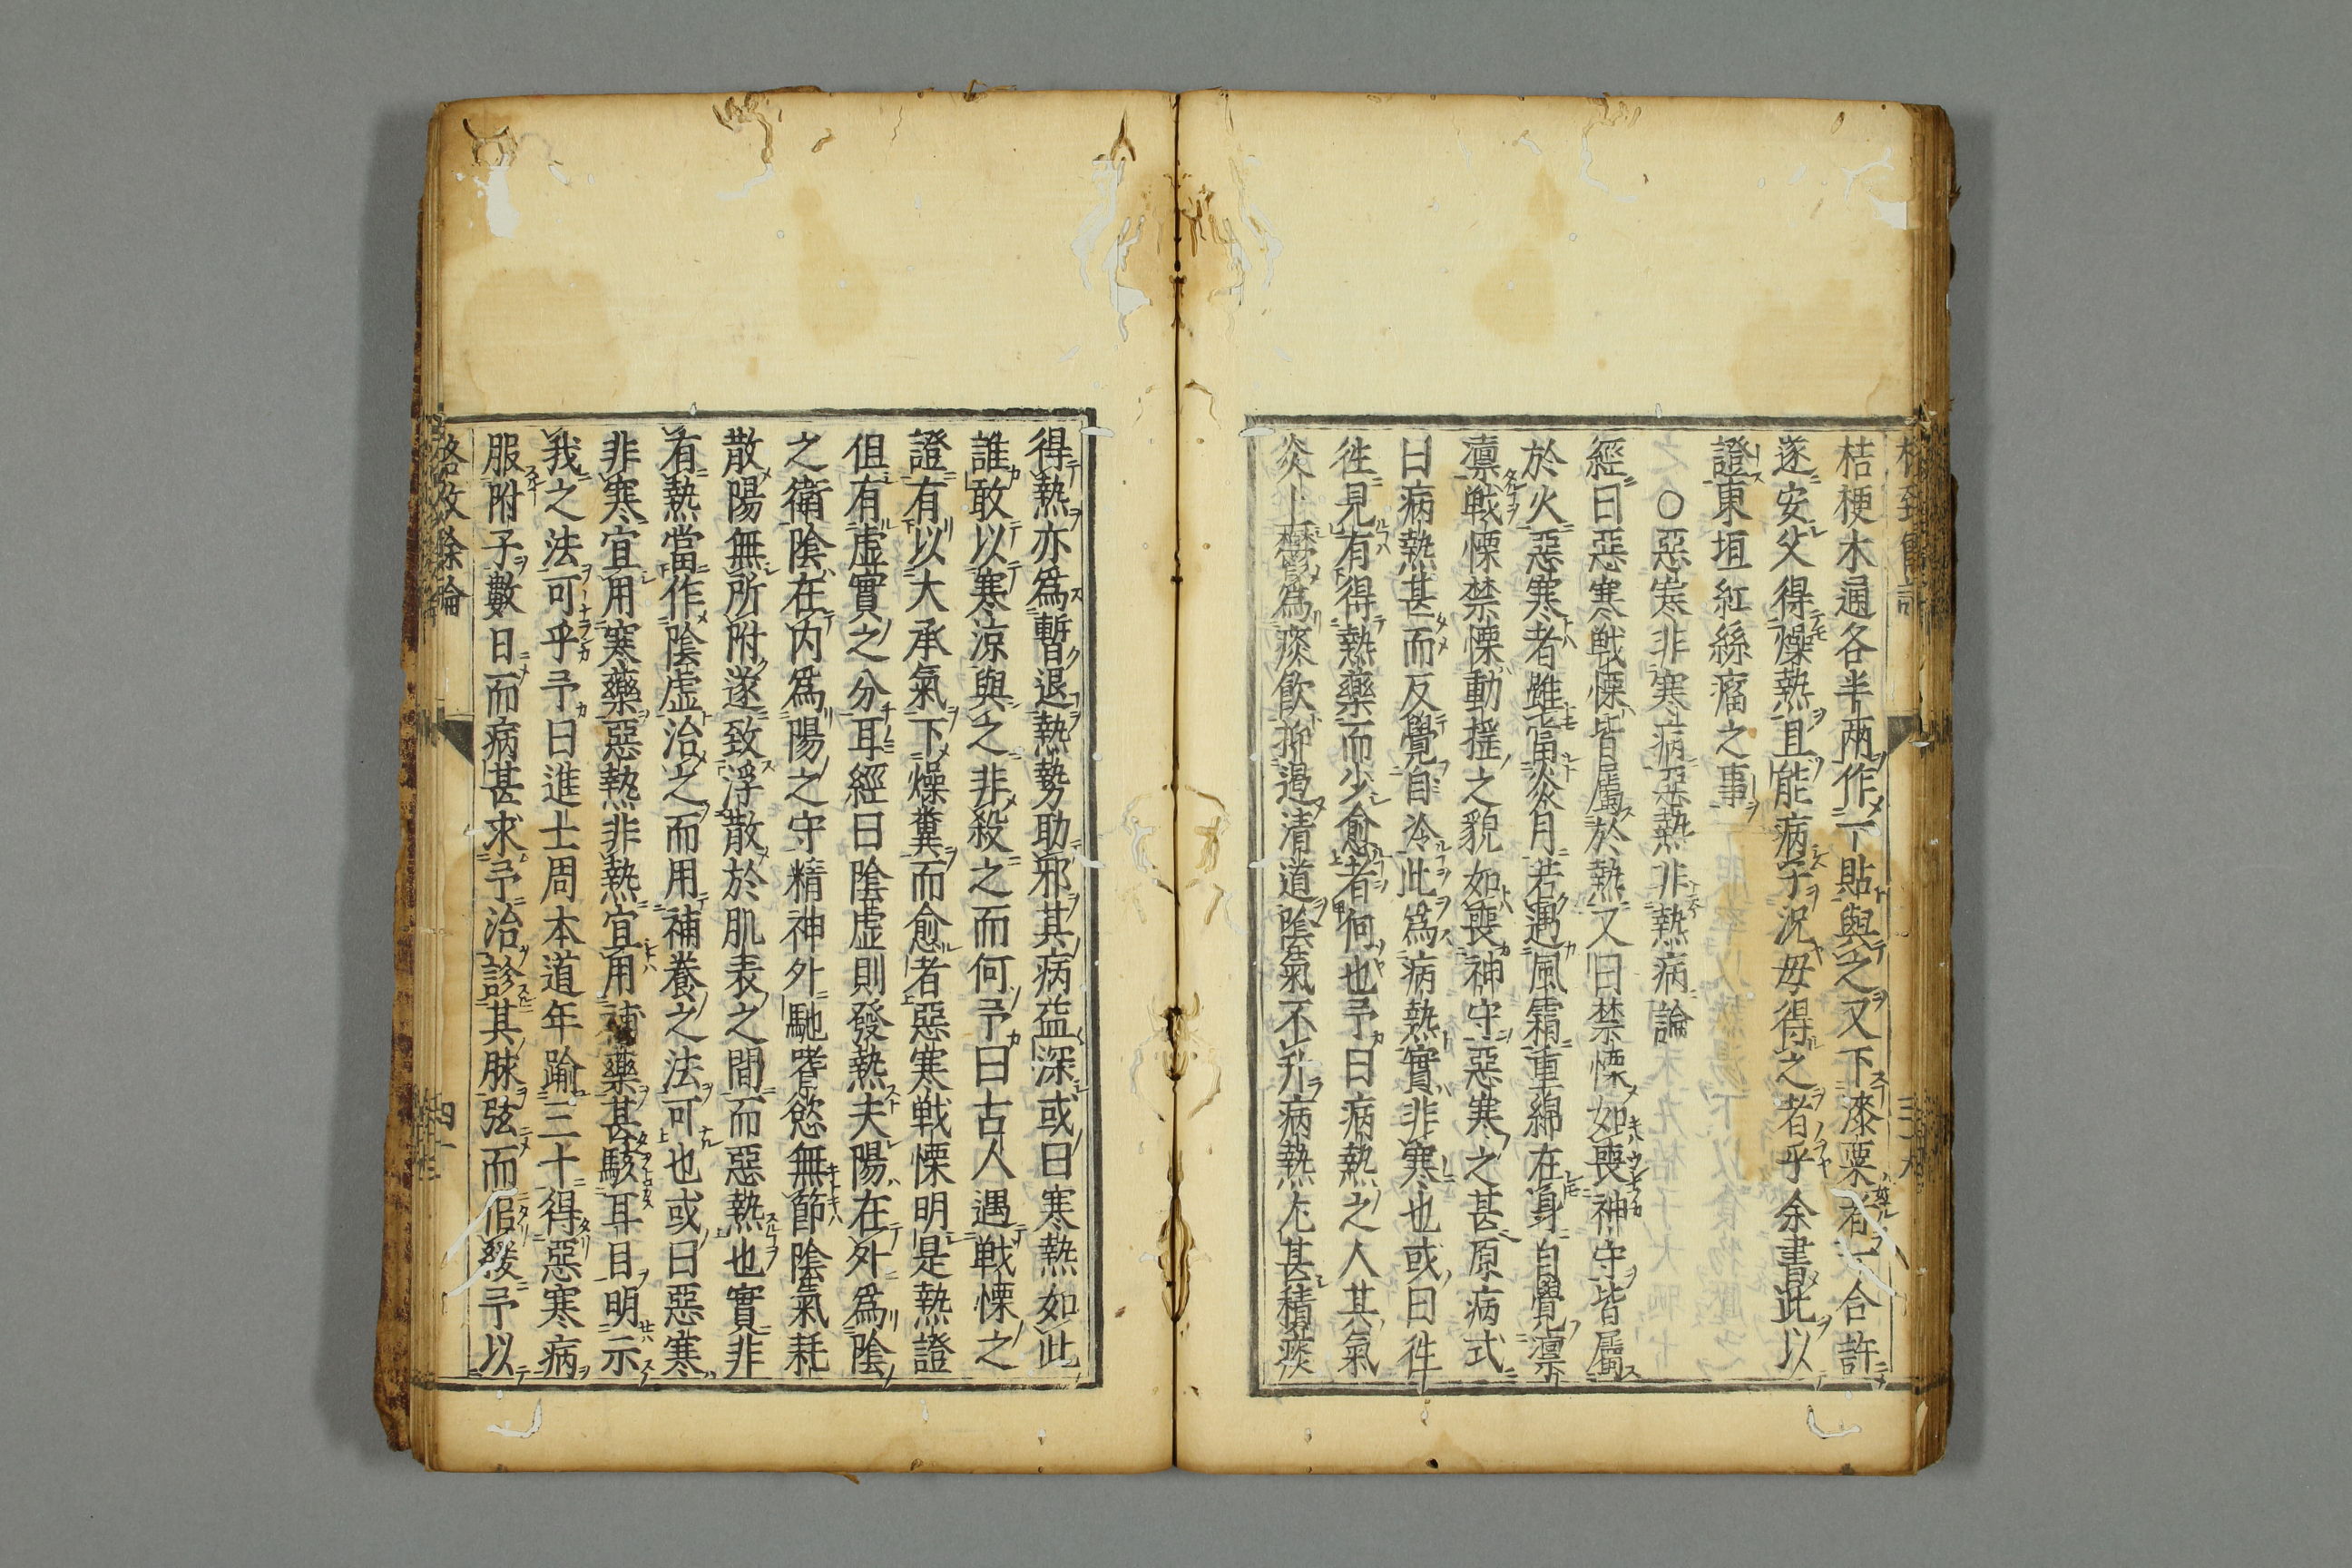 桔梗木通各半兩作一貼與之又下漆粟者一合許
遂安父得燥熱且能病子況母得之者乎余書此以
證東垣紅絲瘤之事
○惡寒非寒病惡熱非熱病論
經曰惡寒戰慄皆屬於熱又曰禁慄如喪神守皆屬
於火惡寒者雖當炎月若遇風霜重綿在身自覺凛
凛戰慄禁慄動揺之貌如喪神守惡寒之甚原病式
曰病熱甚而反覺自冷此爲病熱實非寒也或曰徃
徃見有得熱藥而少愈者何也予曰病熱之人其氣
炎上鬱爲痰飲抑遏清道陰氣不升病熱尤甚積痰
得熱亦爲暫退熱勢助邪其病益深或曰寒熱如此
誰敢以寒涼與之非殺之而何予曰古人遇戰慄之
證有以大承氣下燥糞而愈者惡寒戰慄明是熱證
但有虛實之分耳經曰陰虛則發熱夫陽在外爲陰
之衛陰在内爲陽之守精神外馳嗜慾無節陰氣耗
散陽無所附遂致浮散於肌表之間而惡熱也實非
有熱當作陰虛治之而用補養之法可也或曰惡寒
非寒宜用寒藥惡熱非熱宜用補藥甚駭耳目明示
我之法可乎予曰進士周本道年踰三十得惡寒病
服附子數日而病甚求予治診其脉弦而似緩予以
格致餘論
四十